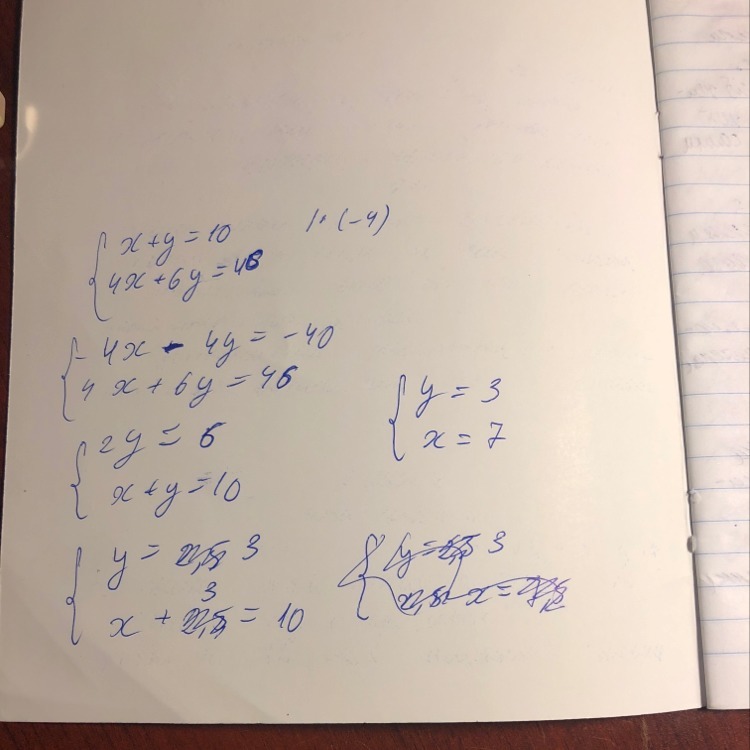 x+y=10 |·(-4)
4x+6y=46
-4x - 4y = -40
4x+6y=46
2y = 6
x+y=10
y = 3
x + 3 = 10
y = 3
x = 7
y = 3